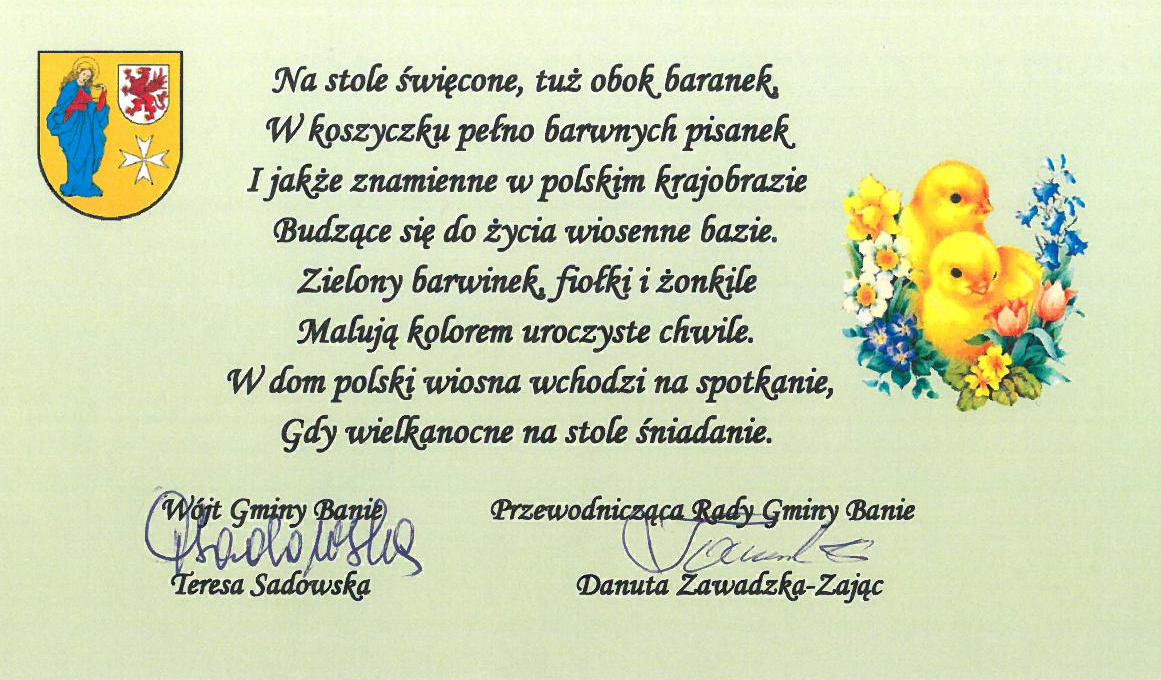 Na stole święcone, tuż obok baranek,
W koszyczku pełno barwnych pisanek
I jakże znamienne w polskim krajobrazie
Budzące się do życia wiosenne bazie.
Zielony barwinek, fiołki i żonkile
Malują kolorem uroczyste chwile.
W dom polski wiosna wchodzi na spotkanie,
Gdy wielkanocne na stole śniadanie.
Wójt Gminy Banie
Sadowska
Teresa Sadowska
Przewodnicząca Rady Gminy Banie
Danuta Zawadzka-Zając